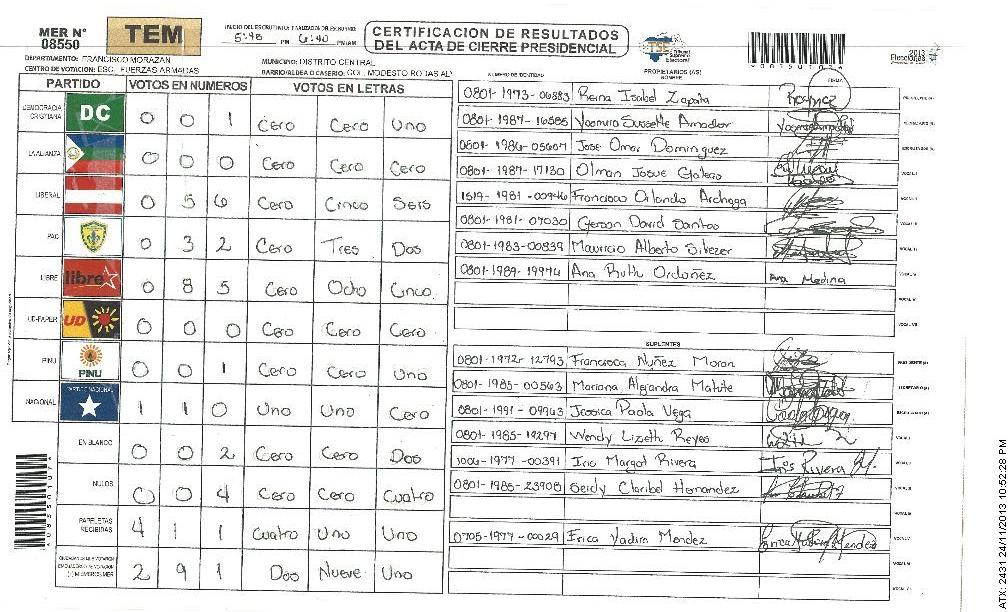 MER N° 08550
TEM
5:40 PM 6:40 PM
CERTIFICACION DE RESULTADOS
DEL ACTA DE CIERRE PRESIDENCIAL
TSE
2013
Elecciones
DEPARTAMENTO: FRANCISCO MORAZAN
MUNICIPIO: DISTRITO CENTRAL
CENTRO DE VOTACION: ESC. FUERZAS ARMADAS
BARRIO/ALDEA O CASERIO: COL. MODESTO RODAS AL
NUMERO DE IDENTIDAD PROPIETARIOS (AS) NOMBRE FIRMA
PARTIDO VOTOS EN NUMEROS VOTOS EN LETRAS
DEMOCRACIA CRISTIANA DC 0 0 1 Cero Cero Uno
LA ALIANZA 0 0 0 Cero Cero Cero
LIBERAL 0 5 6 Cero Cinco Seis
PAC 0 3 2 Cero Tres Dos
LIBRE libre 0 8 5 Cero Ocho Cinco
UD-FAPER UD 0 0 0 Cero Cero Cero
PINU PINU 0 0 1 Cero Cero Uno
NACIONAL PARTIDO NACIONAL 1 1 0 Uno Uno Cero
EN BLANCO 0 0 2 Cero Cero Dos
NULOS 0 0 4 Cero Cero Cuatro
PAPELETAS RECIBIDAS 4 1 1 Cuatro Uno Uno
2 9 1 Dos Nueve Uno
0801-1973-06383 Reina Isabel Zapata
0801-1987-16585 Yoomira Sussette Amador
0801-1986-05607 Jose Omar Dominguez
0801-1987-17130 Olman Josue Galeas
1519-1981-00946 Francisco Orlando Archaga
0801-1981-07030 Gerson David Santos
0801-1983-00839 Mauricio Alberto
0801-1989-19974 Ana Ruth Ordoñez Ana Medina
SUPLENTES
0801-1972-12793 Francisca Nuñez Moran
0801-1985-00563 Mariana Alejandra Matute
0801-1991-09943 Jessica Paola Vega
0801-1985-19297 Wendy Lizeth Reyes
1006-1977-00391 Iris Margot Rivera Iris Rivera M.
0801-1985-23908 Claribel Hernandez
0705-1977-00029 Erica Yadira Mendez
ATX-2431 24/11/2013 10:52:28 PM